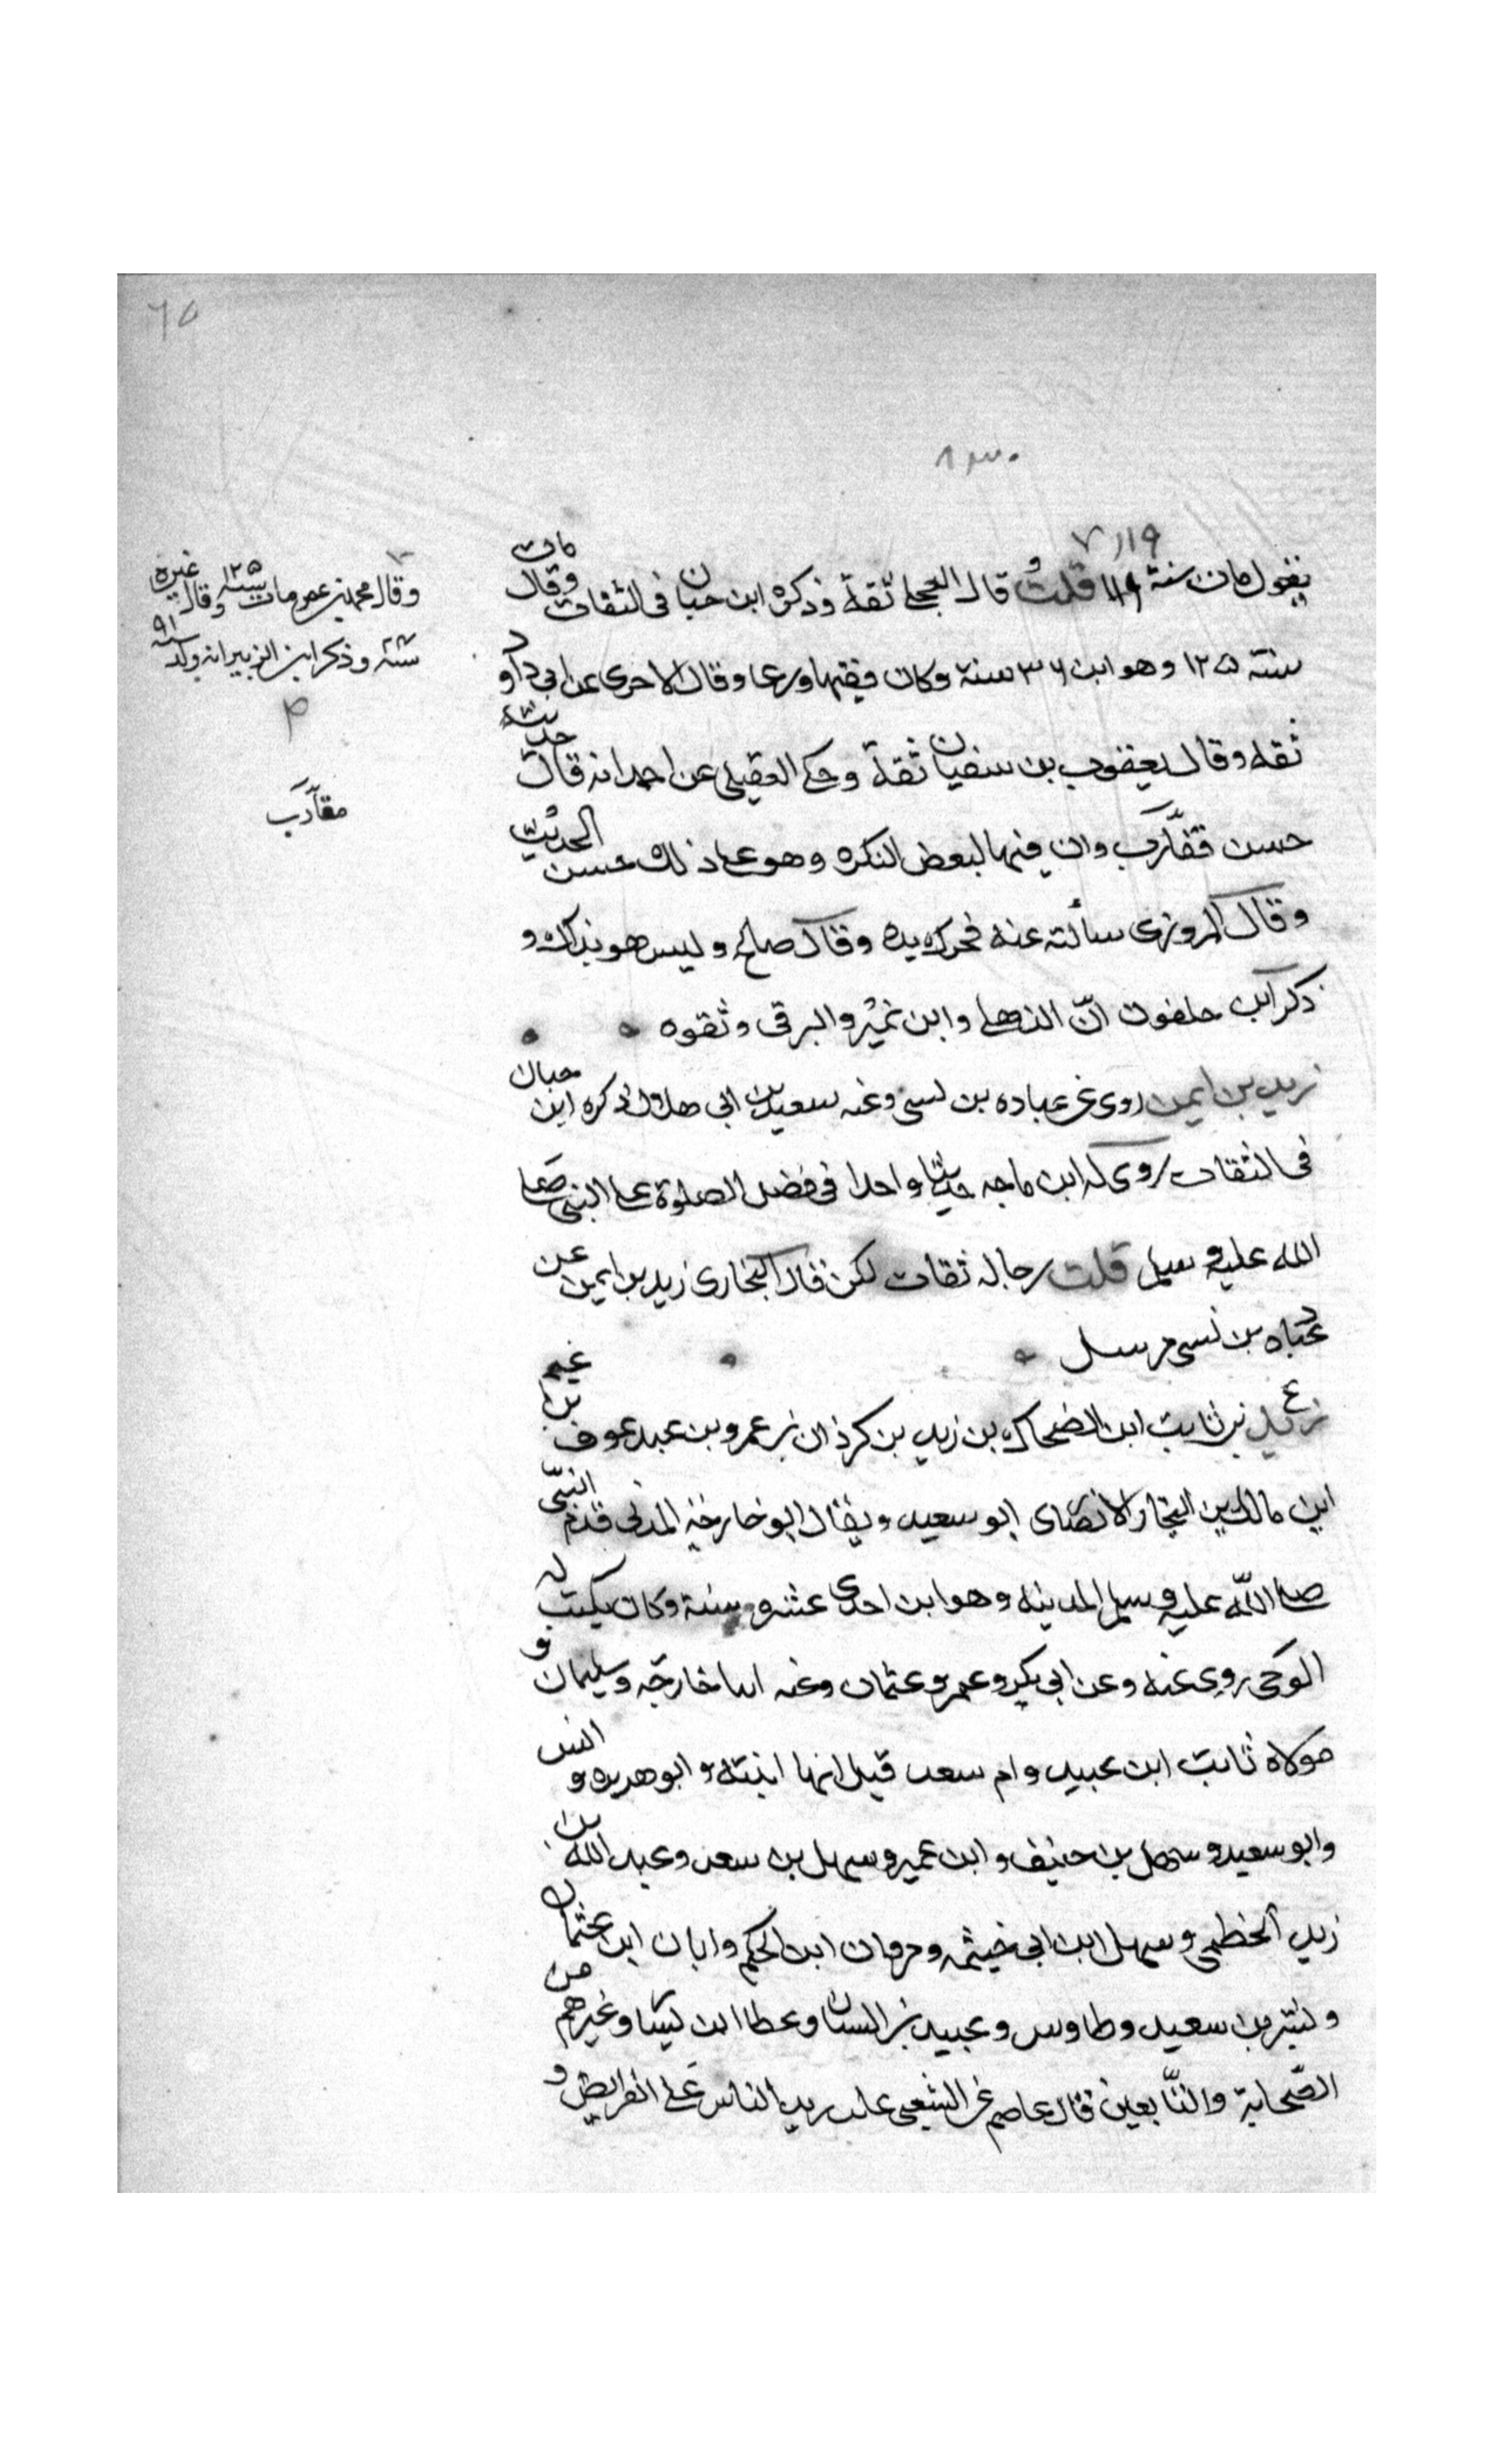 ٦٥
٨٣٠
١١٩ر٧
يقول مات سنة قلت و قال العجلي ثقة وذكره ابن حبان في الثقات وقال مات
سنة ١٢٥ وهو ابن ٣٦ سنة وكان فقيها ورعا وقال الاجرى عن ابي داود
ثقه وقال يعقوب بن سفيان ثقة وحكى العقيلي عن احمد انه قال حديثه
حسن مقارب وان فيها لبعض النكره وهو على ذلك حسن الحديث
وقال المروزى سألته عنه فحرك يده وقال صالح وليس هو بذاك و
ذكر ابن خلفون ان الذهلي وابن نمير والبرقى وثقوه
زيد بن ايمن روى عن عباده بن نسى وعنه سعيد بن ابى هلال ذكره ابن حبان
فى الثقات روى له ابن ماجه حديثا واحدا فى فضل الصلوة على النبى صلى
الله عليه وسلم قلت رجاله ثقات لكن قال البخارى زيد بن ايمن عن
عباده بن نسى مرسل
ع زيد بن ثابت ابن الضحاك بن زيد بن كرذان بن عمرو بن عبد عوف بن غنم
ابن مالك بن النجار الانصارى ابو سعيد ويقال ابو خارجة المدنى قدم النبى
صلى الله عليه وسلم المدينه وهو ابن احدى عشره سنة وكان يكتب له
الوحى روى عنه وعن ابى بكر وعمر وعثمان وعنه ابنا خارجه وسليمان و
مولاه ثابت ابن عبيد وام سعد قيل انها ابنته وابو هريره و انس
وابو سعيد وسهل بن حنيف وابن عمر وسهل بن سعد وعبد الله بن
زيد الخطمى وسهل ابن ابى خيثمه ومروان ابن الحكم وابان ابن عثمان
وبسر بن سعيد وطاوس وعبيد بن السباق وعطا ابن يسار وغيرهم من
الصحابة والتابعين قال عاصم عن الشعبى غلب زيد الناس على الفرايض و
وقال محمد بن عمر مات سنة ١٢٥ وقال غيره
سنة وذكر ابن الزبير انه ولد سنه ٩١
م
مقارب